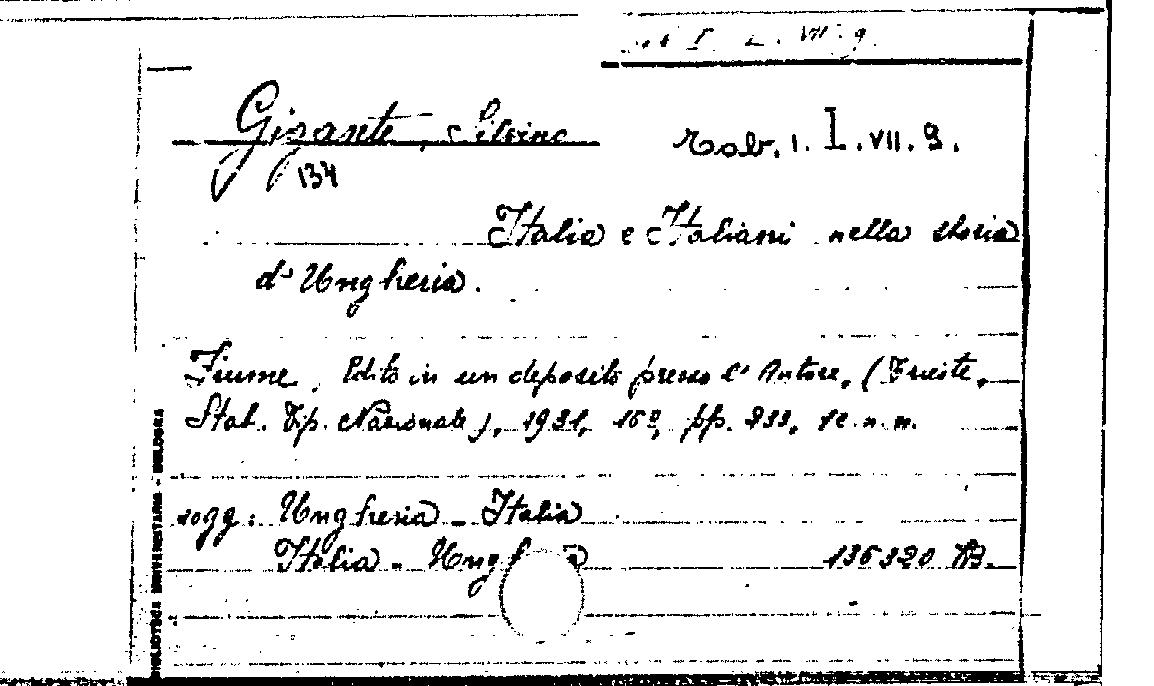 I. L. VII. 9.
Gigante, Silvino
Rab. 1. I. VII. 9.
134
Italia e Italiani nella storia
d'Ungheria.
Fiume, Edito in un deposito presso l'Autore, (Trieste,
Stab. Tip. Nazionale), 1931, 16º, pp. 233, 1 c. n. n.
sogg: Ungheria - Italia
Italia - Ungheria
136320 AB.
BIBLIOTECA UNIVERSITARIA - BOLOGNA